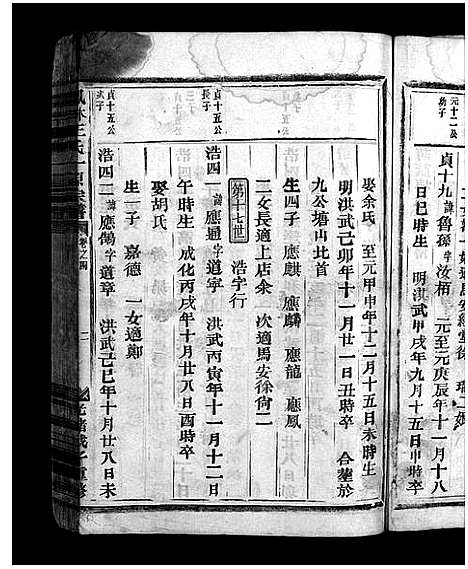 元十二公
幼子
貞十九 諱魯孫 字汝栢 元至元庚辰年十一月十八
日巳時生 明洪武甲戌年九月十五日申時卒
娶余氏 至元甲申年十二月十五日未時生
明洪武己卯年十一月廿一日丑時卒 合塟於
九公塘山北首
生四子 應麒 應麟 應龍 應鳳
二女長適上店余 次適馬安徐尙二
第十七世 浩字行
貞十五公
長子
浩四一 諱應通 字道寧 洪武丙寅年十一月十二日
午時生 成化丙戌年十月廿八日酉時卒
娶胡氏
生一子 嘉德 一女適鄭
貞十五公
浩四二 諱應鵠 字道章 洪武己巳年十月廿八日未
卷之四
二
光緒戊子重修